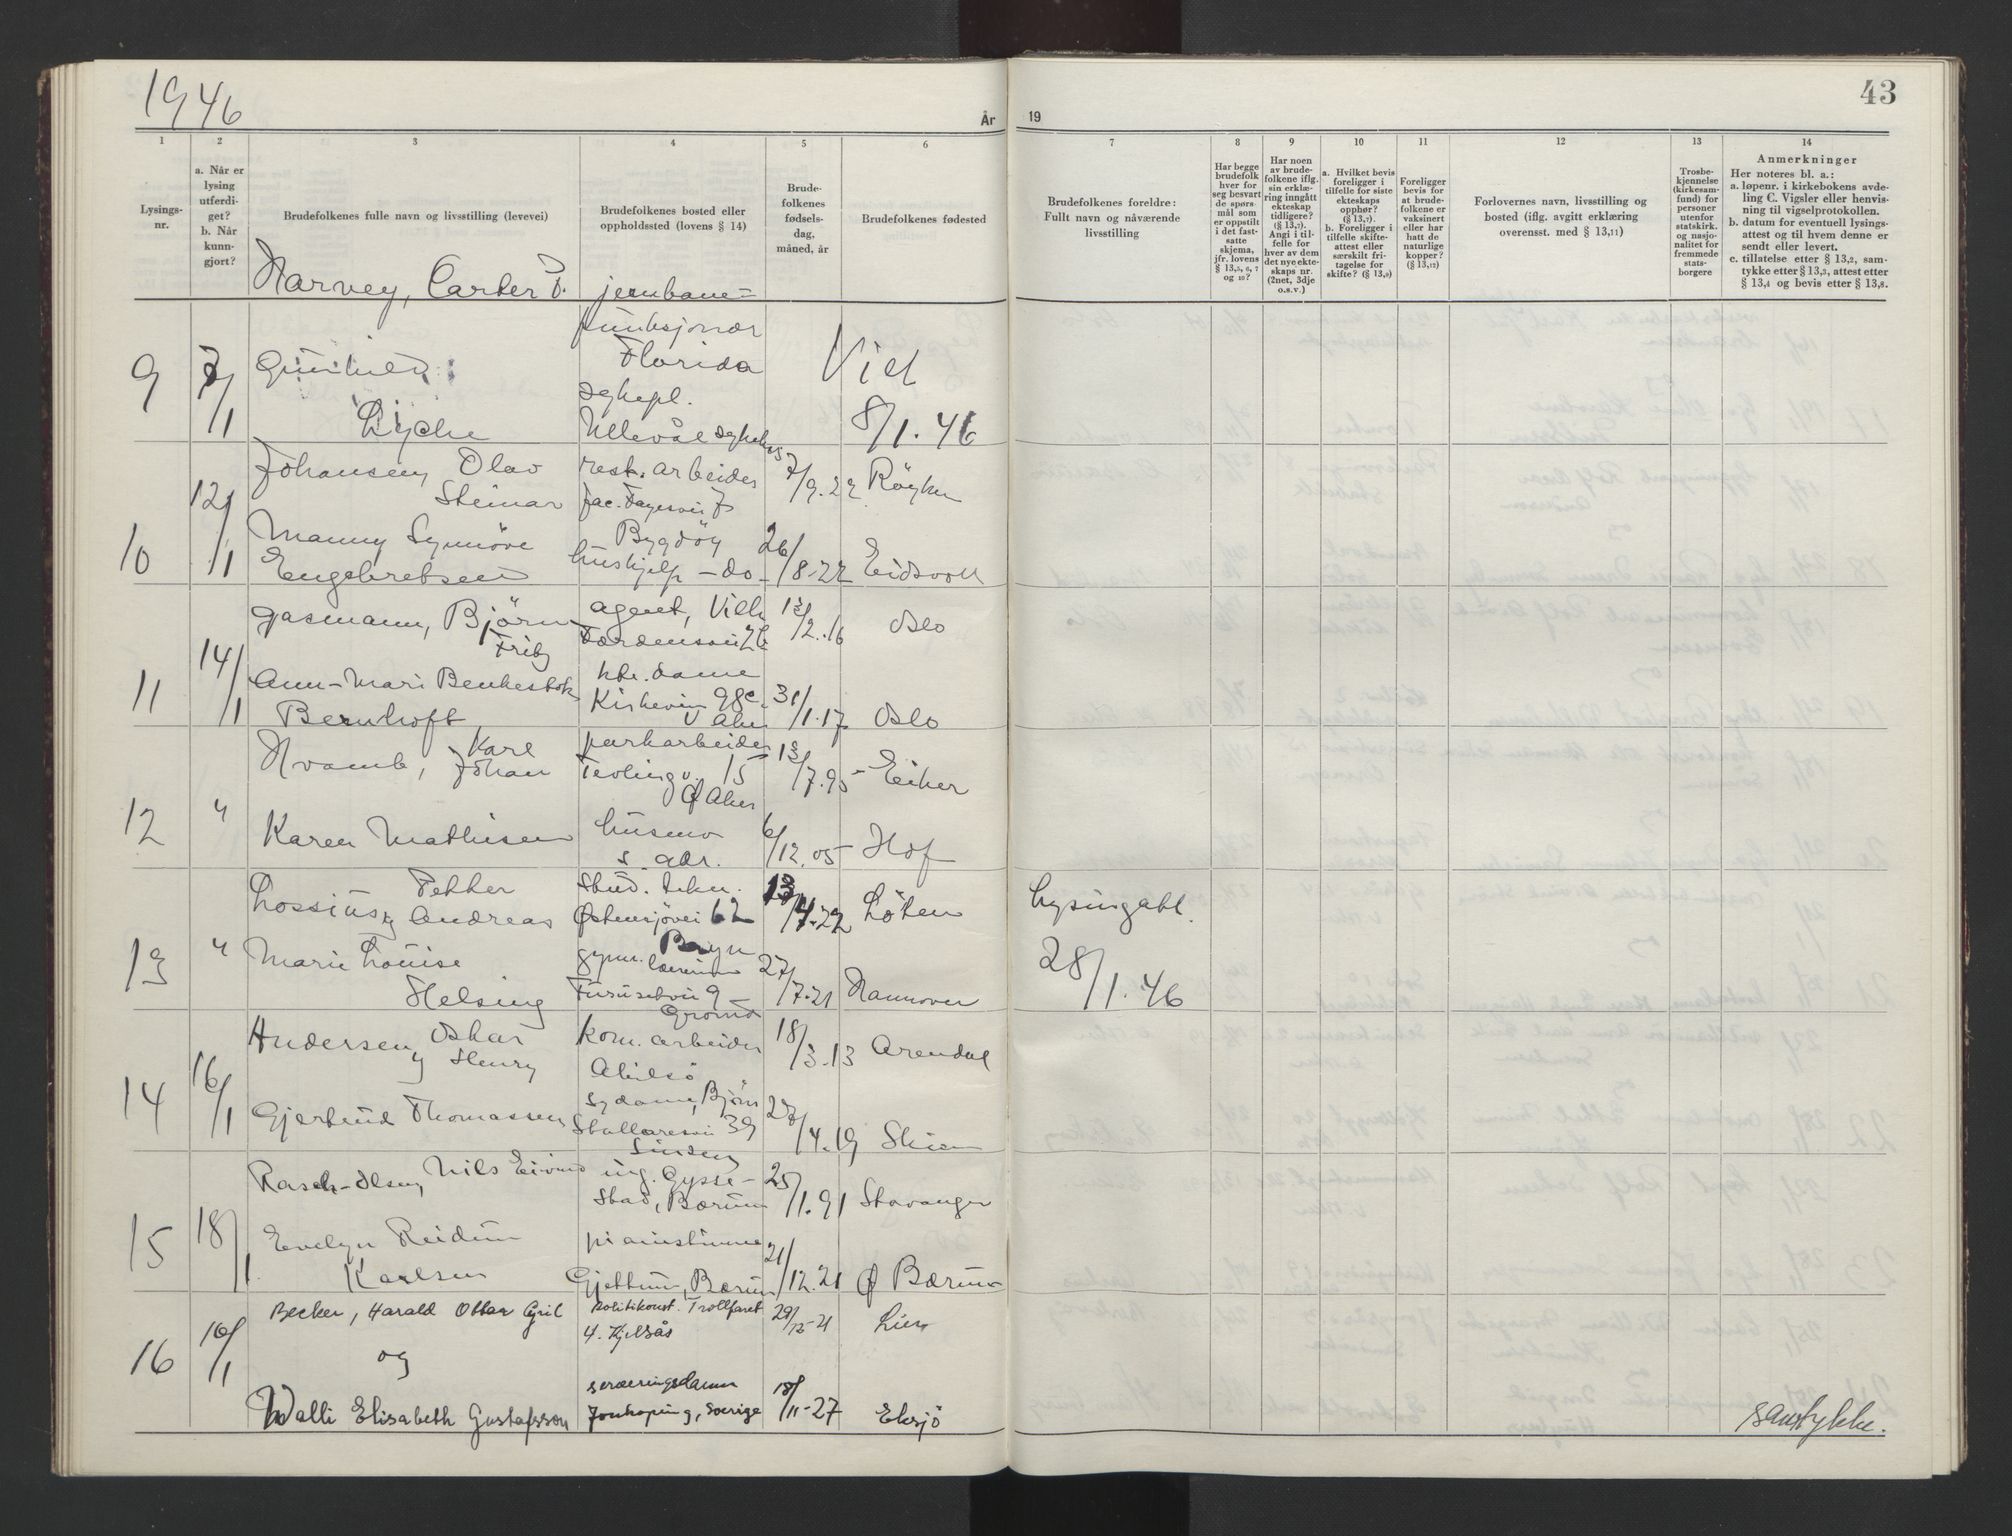 1946
År
19
43
1
2
3
4
5
6
7
8
9
10
11
12
13
14
Lysings-
nr.
a. Når er
lysing
utferdi-
get?
b. Når
kunn-
gjort?
Brudefolkenes fulle navn og livsstilling (levevei)
Brudefolkenes bosted eller
oppholdssted (lovens § 14)
Brude-
folkenes
fødsels-
dag,
måned, år
Brudefolkenes fødested
Brudefolkenes foreldre:
Fullt navn og nåværende
livsstilling
Har begge
brudefolk
hver for
seg besvart
de spørs-
mål som
er oppstilt
i det fast-
satte
skjema,
jfr. lovens
§ 13,5, 6, 7
og 10?
Har noen
av brude-
folkene iflg.
sin erklæ-
ring inngått
ekteskap
tidligere?
(§ 13,7).
Angi i til-
felle for
hver av dem
det nye ekte-
skaps nr.
(2net, 3dje
o.s.v.)
a. Hvilket bevis
foreligger i
tilfelle for siste
ekteskaps
opphør?
(§ 13,7).
b. Foreligger i
tilfelle skifte-
attest eller
særskilt fri-
tagelse for
skifte? (§ 13,9)
Foreligger
bevis for
at brude-
folkene er
vaksinert
eller har
hatt de
naturlige
kopper?
(§ 13,12)
Forlovernes navn, livsstilling og
bosted (iflg. avgitt erklæring
overensst. med § 13,11)
Trosbe-
kjennelse
(kirkesam-
fund) for
personer
utenfor
statskirk.
og nasjo-
nalitet for
fremmede
stats-
borgere
Anmerkninger
Her noteres bl. a.:
a. løpenr. i kirkebokens avde-
ling C. Vigsler eller henvis-
ning til vigselprotokollen.
b. datum for eventuell lysings-
attest og til hvem denne er
sendt eller levert.
c. tillatelse etter § 13,2, sam-
tykke etter § 13,3, attest etter
§ 13,4 og bevis etter § 13,8.
Harvey, Carter F. jernbane-
funksjonær
Florida
9 7/1 Gunhild Viet
sykepl.
Lyche Ullevål sykehus 8/1. 46
Johansen, Olav rest. arbeider 7/9.22 Röyken
Steinar Jac. Fayesvei 7
10 12/1 Manny Synnöve Bygdöy 26/8-22 Eidsvoll
Engebretsen hushjelp - do -
Gasmann, Björn agent, Vilh. 13/2.16 Oslo
Færdensvei
11 14/1 Ann-Mari Benkestok ktr. dame
Bernhoft Kirkevn 98c. 31/1.17 Oslo
V Aker
Hvamb, Karl Johan parkarbeider 13/7.95 Eiker
15
Ø Aker
12 " Karen Mathisen husmor 6/12.05 Hof
s. adr.
Lossius, Petter Andreas Stud. tekn. 13/4.22 Löten
Østensjövei 62
Bryn
13 " Marie Louise gymn. lærerinne 27/7.21 Hannover
Helsing Furusetvei 9
Grorud
Lysingatt.
28/1.46
Andersen, Oskar Henry kom. arbeider 18/3.13 Arendal
Abilsö
14 16/1 Gjertrud Thomassen sydame, Björn
Stallaresvei 39 /4.19 Skien
Sinsen
Rasch-Olsen, Nils Eivind ing. Gysse- 25/1.91 Stavanger
stad, Bærum
15 18/1 Evelyn Reidun pianistinne 21/12.21 Ø Bærum
Karlsen Gjettum, Bærum
Becker, Harald Ottar Cyril Politikonst. Trollfaret 29/12-21 Lier
4. Kjelsås
16 10/1 og
Walli Elisabeth Gustafsson serveringsdame 18/11-27 Eksjö
Jönköping, Sverige
samtykke.